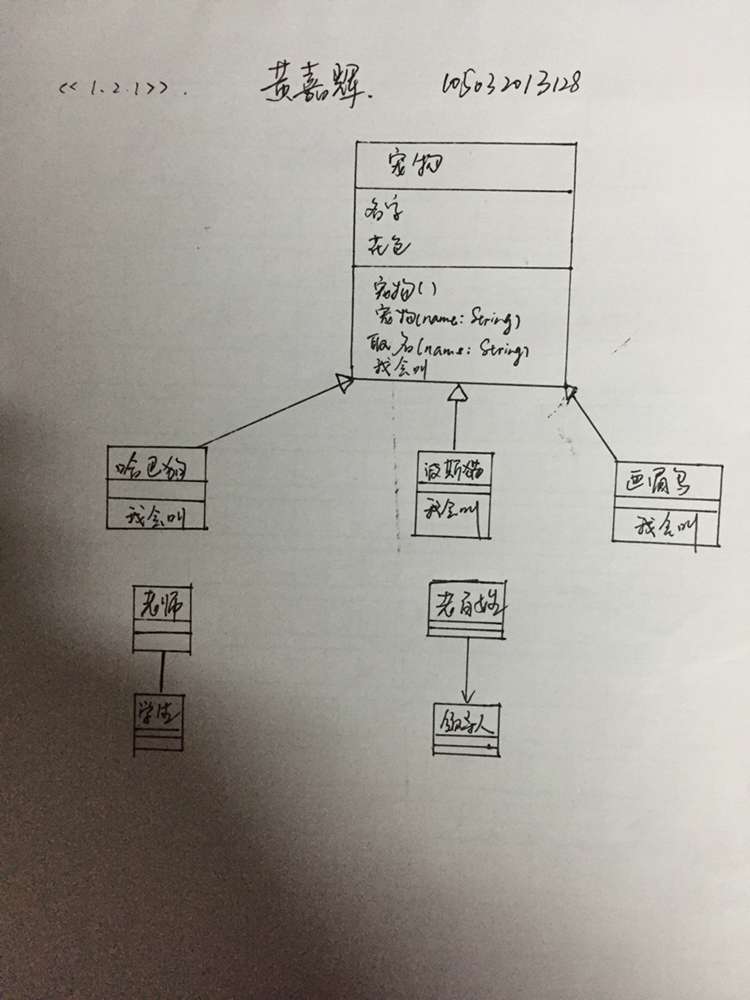 <<1.2.1>>. 黄嘉辉. 105032013128
宠物
名字
花色
宠物()
宠物(name: String)
取名(name: String)
我会叫
哈巴狗
我会叫
波斯猫
我会叫
画眉鸟
我会叫
老师
学生
老百姓
领导人